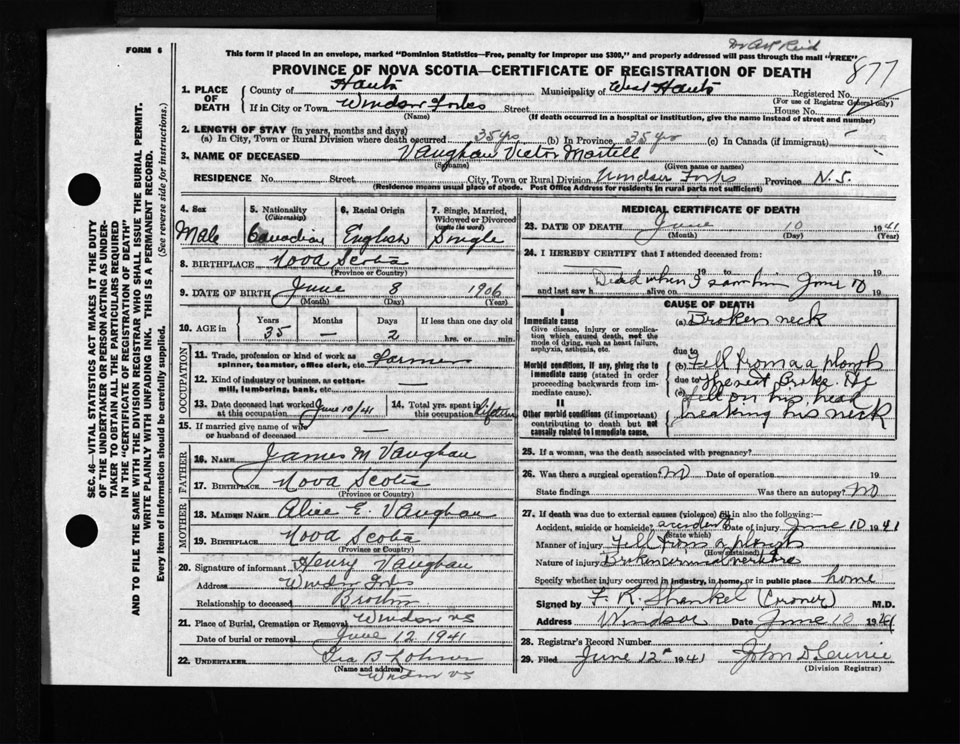 FORM 6
Dr Art Reid
This form if placed in an envelope, marked "Dominion Statistics—Free, penalty for improper use $300," and properly addressed will pass through the mail "FREE"
PROVINCE OF NOVA SCOTIA—CERTIFICATE OF REGISTRATION OF DEATH
877
1. PLACE OF DEATH
County of Hants Municipality of West Hants Registered No.
(For use of Registrar General only)
If in City or Town Windsor Forks Street House No.
(Name) (If death occurred in a hospital or institution, give the name instead of street and number)
2. LENGTH OF STAY (in years, months and days)
(a) In City, Town or Rural Division where death occurred 35 yrs (b) In Province 35 yrs (c) In Canada (if immigrant)
3. NAME OF DECEASED Vaughan Victor Martell
(Surname) (Given name or names)
RESIDENCE No. Street City, Town or Rural Division Windsor Forks Province N.S.
(Residence means usual place of abode. Post Office Address for residents in rural parts not sufficient)
4. Sex 5. Nationality (Citizenship) 6. Racial Origin 7. Single, Married, Widowed or Divorced (write the word)
Male Canadian English Single
8. BIRTHPLACE Nova Scotia
(Province or Country)
9. DATE OF BIRTH June 8 1906
(Month) (Day) (Year)
10. AGE in Years Months Days If less than one day old
35 — 2 hrs. or min.
OCCUPATION
11. Trade, profession or kind of work as spinner, teamster, office clerk, etc. Farmer
12. Kind of industry or business, as cotton-mill, lumbering, bank, etc. —
13. Date deceased last worked at this occupation June 10/41 14. Total yrs. spent in this occupation lifetime
15. If married give name of wife or husband of deceased —
FATHER
16. NAME James M Vaughan
17. BIRTHPLACE Nova Scotia
(Province or Country)
MOTHER
18. MAIDEN NAME Alice E. Vaughan
19. BIRTHPLACE Nova Scotia
(Province or Country)
20. Signature of informant Henry Vaughan
Address Windsor Forks
Relationship to deceased Brother
21. Place of Burial, Cremation or Removal Windsor NS
Date of burial or removal June 12 1941
22. UNDERTAKER Ira B Lohnes
(Name and address)
Windsor NS
MEDICAL CERTIFICATE OF DEATH
23. DATE OF DEATH June 10 1941
(Month) (Day) (Year)
24. I HEREBY CERTIFY that I attended deceased from:
19 to 19
Dead when I saw him June 10
and last saw h alive on 19
CAUSE OF DEATH
I
Immediate cause
Give disease, injury or complication which caused death, not the mode of dying, such as heart failure, asphyxia, asthenia, etc.
(a) Broken neck
due to
Morbid conditions, if any, giving rise to immediate cause (stated in order proceeding backwards from immediate cause).
(b) Fell from a plough
due to
(c) Whenevet broke. He
fell on his head
breaking his neck
II
Other morbid conditions (if important) contributing to death but not causally related to immediate cause.
25. If a woman, was the death associated with pregnancy?
26. Was there a surgical operation? No Date of operation 19
State findings Was there an autopsy? No
27. If death was due to external causes (violence) fill in also the following:—
Accident, suicide or homicide? accident Date of injury June 10 1941
(State which)
Manner of injury Fell from a plough
(How sustained)
Nature of injury Broken cervical vertebra
Specify whether injury occurred in industry, in home, or in public place home
Signed by F. R. Shankel (Coroner) M.D.
Address Windsor Date June 10 1941
28. Registrar's Record Number
29. Filed June 12th 1941 John D Currie
(Division Registrar)
SEC. 46—VITAL STATISTICS ACT MAKES IT THE DUTY
OF THE UNDERTAKER OR PERSON ACTING AS UNDER-
TAKER TO OBTAIN ALL THE PARTICULARS REQUIRED
IN THE "CERTIFICATE OF REGISTRATION OF DEATH"
AND TO FILE THE SAME WITH THE DIVISION REGISTRAR WHO SHALL ISSUE THE BURIAL PERMIT.
WRITE PLAINLY WITH UNFADING INK. THIS IS A PERMANENT RECORD.
Every item of information should be carefully supplied. (See reverse side for instructions.)